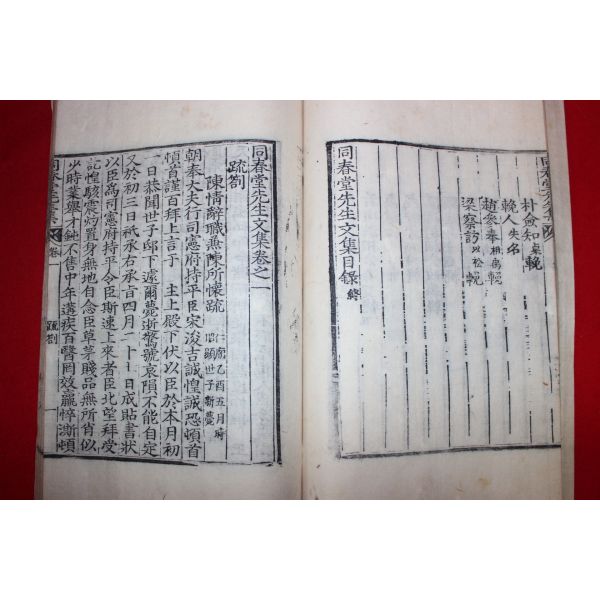 朴僉知㮚輓
趙參奉相禹輓
輓人失名
梁察訪以松輓
同春堂先生文集目錄終
同春堂先生文集卷之一
疏劄
陳情辭職兼陳所懷疏 仁廟乙酉五月時昭顯世子新薨
朝奉大夫行司憲府持平臣宋浚吉誠惶誠恐頓首
頓首謹百拜上言于 主上殿下伏以臣於本月初
一日恭聞世子邸下遽爾薨逝驚號哀隕不能自定
又於初三日祇承右承旨四月二十七日成貼書狀
以臣爲司憲府持平令臣斯速上來者臣北望拜受
記惶駭震灼置身無地自念臣草茅賤品無所肖似
少時業擧才鈍不售中年遘疾百醫罔效羸悴澌頓
卷一
疏劄
一